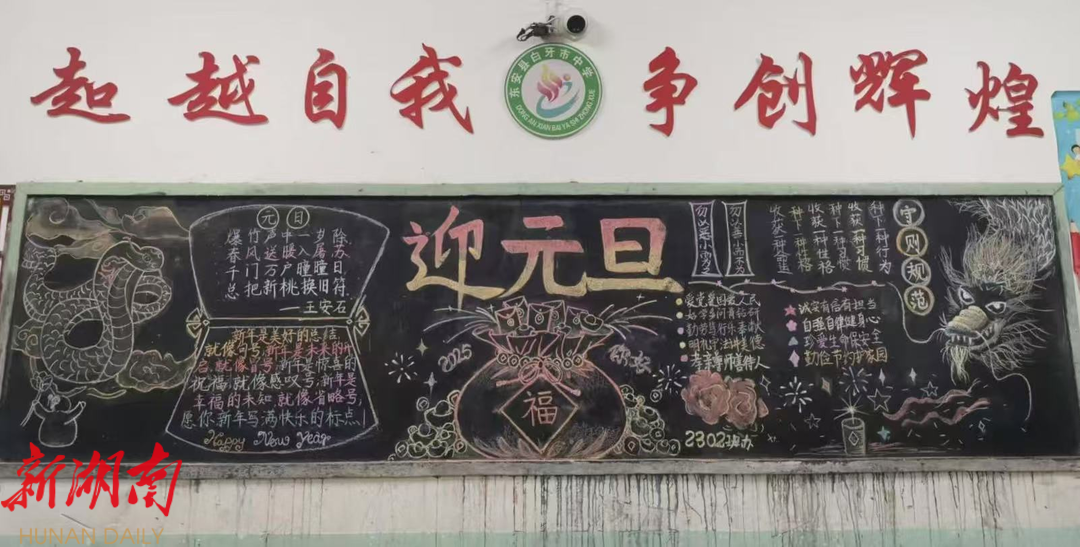 起越自我 争创辉煌
东安县白牙市中学
DONG AN XIAN BAI YA SHI ZHONG XUE
元日
爆竹声中一岁除
春风送暖入屠苏
千门万户曈曈日
总把新桃换旧符
—王安石
新年是美好的总结,
就像句号;新年是未来的
后,就像冒号;新年是惊喜的
祝福,就像感叹号;新年是
幸福的未知,就像省略号
愿你新年写满快乐的标点!
Happy New Year
迎元旦
2025
欢欢
福
勿以善小而不为
勿以恶小而为
守则规范
种下一种行为
收获一种习惯
种下一种性格
爱党爱国爱人民
好学多问肯钻研
勤劳笃行乐奉献
明礼守法讲美德
孝亲尊师善待人
诚实守信有担当
自强自律健身心
珍爱生命保安全
勤俭节约护家园
2302班办
新湖南
HUNAN DAILY